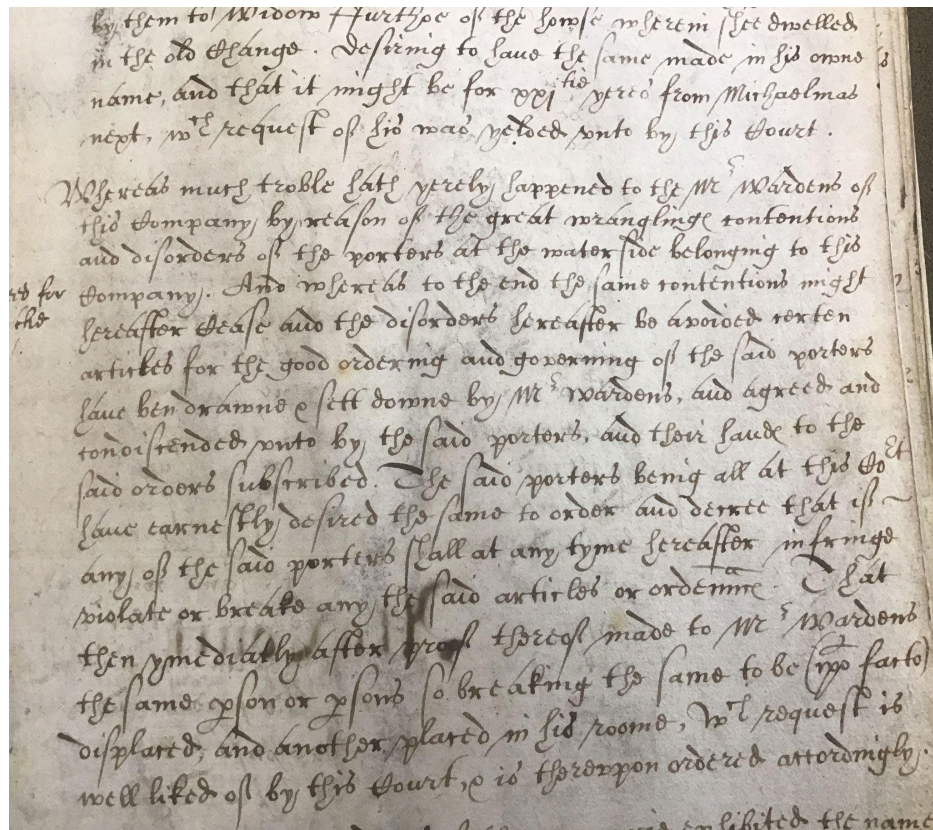 by them to Widow Furthoe of the howse wherein shee dwelled
in the old Change. Desiring to have the same made in his owne
name, and that it might be for xxj tie yeres from Michaelmas
next, wch request of his was yelded vnto by this Court.
Whereas much troble hath yerely happened to the Mr Wardens of
this Company by reason of the great wranglinge contentions
and disorders of the porters at the water side belonging to this
Company. And whereas to the end the same contentions might
hereafter cease and the disorders hereafter be avoided certen
articles for the good ordering and governing of the said porters
have ben drawne & sett downe by Mr Wardens, and agreed and
condiscended vnto by the said porters, and their handes to the
said orders subscribed. The said porters being all at this Co:rt
have earnestly desired the same to order and decree that if
any of the said porters shall at any tyme hereafter infringe
violate or breake any the said articles or ordennce. That
then ymediatly after proof thereof made to Mr Wardens
the same pson or psons so breaking the same to be (ipo facto)
displaced, and another placed in his roome, Wch request is
well liked of by this Court, & is therevpon ordered accordingly.
for
the
exhibited the name